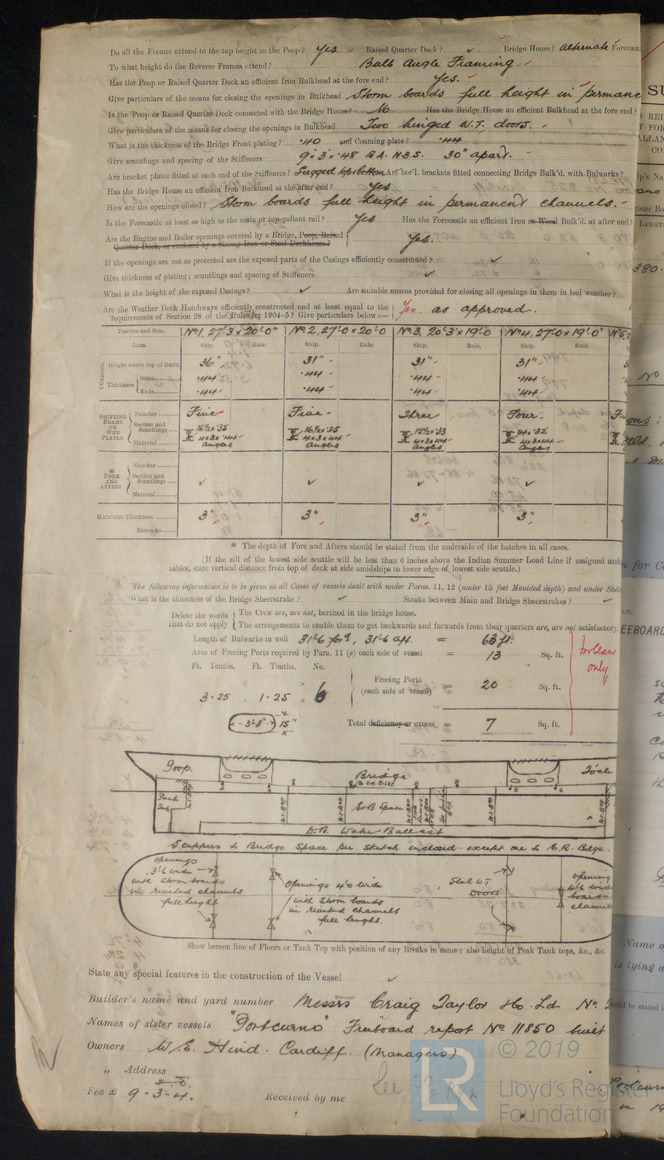 Do all the Frames extend to the top height in the Poop? Yes Raised Quarter Deck? Bridge House? alternate Forecas
To what height do the Reverse Frames extend? Bulb Angle Framing.
Has the Poop or Raised Quarter Deck an efficient Iron Bulkhead at the fore end? Yes.
Give particulars of the means for closing the openings in Bulkhead Storm boards full height in permane
Is the Poop or Raised Quarter Deck connected with the Bridge House? No Has the Bridge House an efficient Bulkhead at the fore end?
Give particulars of the means for closing the openings in Bulkhead Two hinged W.T. doors.
What is the thickness of the Bridge Front plating? .40 and Coaming plate? .44
Give scantlings and spacing of the Stiffeners 9 x 3 x .48 B.A. 30" apart.
Are bracket plates fitted at each end of the Stiffeners? Lugged top & bottom Are hor'l. brackets fitted connecting Bridge Bulk'd. with Bulwarks?
Has the Bridge House an efficient Iron Bulkhead at the after end? Yes
How are the openings closed? Storm boards full height in permanent channels.
Is the Forecastle at least as high as the main or top-gallant rail? Yes Has the Forecastle an efficient Iron or Wood Bulk'd. at after end?
Are the Engine and Boiler openings covered by a Bridge, Poop, Raised
Quarter Deck, or enclosed by a Strong Iron or Steel Deckhouse? Yes.
If the openings are not so protected are the exposed parts of the Casings efficiently constructed?
Give thickness of plating; scantlings and spacing of Stiffeners
What is the height of the exposed Casings? Are suitable means provided for closing all openings in them in bad weather?
Are the Weather Deck Hatchways efficiently constructed and at least equal to the
requirements of Section 28 of the Rules for 1904-5? Give particulars below:— Yes. as approved.
Position and Size. No 1, 27'3 x 20'0" No 2, 27'0 x 20'0 No 3, 20'3 x 19'0 No 4, 27'0 x 19'0"
Item. Ship. Rule. Ship. Rule. Ship. Rule. Ship. Rule.
COAMING
Height above top of Deck 36" 31" 31" 31"
Thickness Sides .44 .44 .44 .44
Ends .44 .44 .44 .44
SHIFTING BEAMS OR WEB PLATES.
Number Five Five Three Four
Section and Scantlings 16½ x .35 16½ x .35 12½ x .33 14 x .32
4 x 3 x .44 4 x 3 x .44 4 x 3 x .44 4 x 3 x .44
Material Angles Angles Angles Angles
* FORE AND AFTERS.
Number
Section and Scantlings
Material
HATCHES Thickness 3" 3" 3" 3"
Remarks
* The depth of Fore and Afters should be stated from the underside of the hatches in all cases.
(If the sill of the lowest side scuttle will be less than 6 inches above the Indian Summer Load Line if assigned und
tables, state vertical distance from top of deck at side amidships to lower edge of lowest side scuttle.)
The following information is to be given in all Cases of vessels dealt with under Paras. 11, 12 (under 15 feet Moulded depth) and under She
What is the thickness of the Bridge Sheerstrake? Strake between Main and Bridge Sheerstrakes?
Delete the words The Crew are, are not, berthed in the bridge house.
that do not apply The arrangements to enable them to get backwards and forwards from their quarters are, are not satisfactory.
Length of Bulwarks in well 31'6 for'd, 31'6 aft. = 63 ft.
Area of Freeing Ports required by Para. 11 (e) each side of vessel = 13 Sq. ft.
Ft. Tenths. Ft. Tenths. No.
3.25 x 1.25 x 6 Freeing Ports (each side of vessel) = 20 Sq. ft.
3'-3" 15" Total deficiency or excess = 7 Sq. ft.
for Wells only
Poop. Bridge Focl
Peak Tank
E & B Space
D.B. Water Ballast
Scuppers to Bridge Space per sketch enclosed except one to E.R. Bilge.
Openings 3'6 wide with storm boards in riveted channels full height
Openings 4'0 wide with storm boards in riveted channels full height.
Steel W.T. Doors
Opening 4'6 wide boards channels
Show hereon line of Floors or Tank Top with position of any Breaks in same; also height of Peak Tank tops, &c., &c.
State any special features in the construction of the Vessel
Builder's name and yard number Messrs Craig Taylor & Co. Ld No.
Names of sister vessels "Portcurno" Freeboard report No 11850 built
Owners W. E. Hind. Cardiff. (Managers)
" Address
Fee £ 9-3-4. Received by me
© 2019
LR Lloyd's Register
Foundation